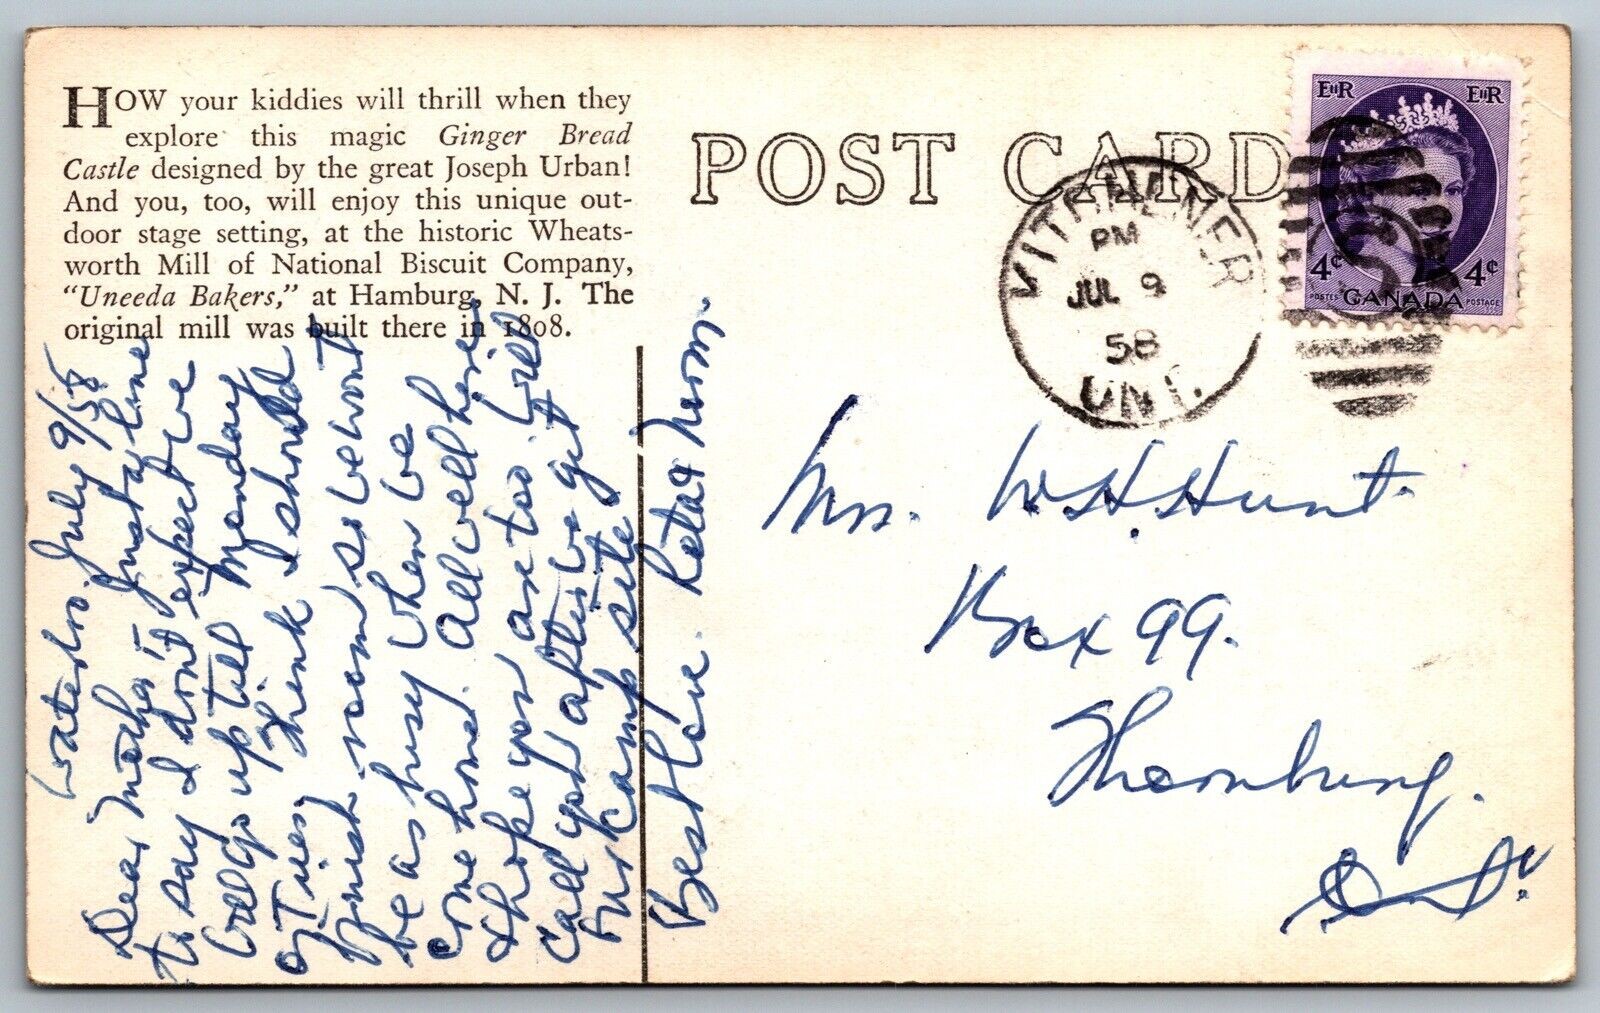 HOW your kiddies will thrill when they
explore this magic Ginger Bread
Castle designed by the great Joseph Urban!
And you, too, will enjoy this unique out-
door stage setting, at the historic Wheats-
worth Mill of National Biscuit Company,
"Uneeda Bakers," at Hamburg, N. J. The
original mill was built there in 1808.
POST CARD
KITCHENER
PM
JUL 9
58
ONT.
EIIR EIIR
4¢ 4¢
POSTES CANADA POSTAGE
Waterloo. July 9/58
Dear Mother:- Just a line
to say I don't expect we
will go up till Monday
or Tues, think I should
finish room so we won't
be as busy when we
come home. All well here
& hope you are too. Will
call you after we get
our camp site
Best Love. Reta & Norm.
Mrs. W. H. Hunt.
Box 99.
Thornbury.
Ont.